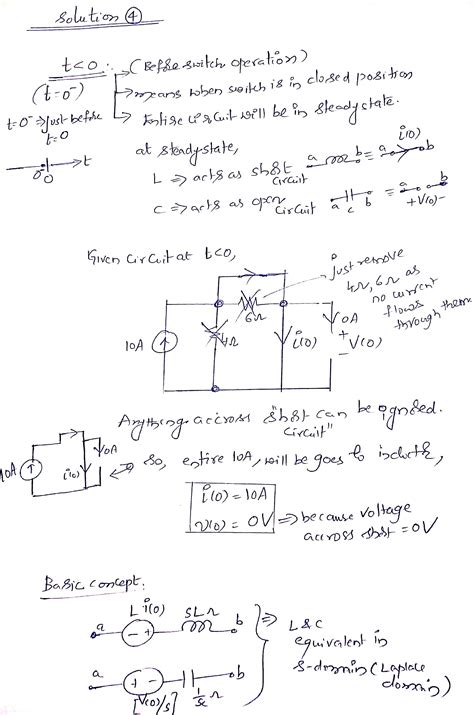 Solution ④
t<0 : → (Before switch operation)
(t=0⁻) → means when switch is in closed position
t=0⁻ ⇒ just before t=0
→ Entire circuit will be in steady state.
0⁻ 0 → t
at steady state,
L ⇒ acts as short circuit a b ≡ a i(0) b
C ⇒ acts as open circuit a c b ≡ a b +V(0)-
Given circuit at t<0,
Just remove
4Ω, 6Ω as
no current
flows
through them
10A 4Ω 6Ω i(0) 0A + V(0) -
Anything accross "short circuit" can be ignored.
10A i(0) 0A
⇒ So, entire 10A, will be goes to
i(0) = 10A
V(0) = 0V ⇒ because voltage
across short = 0V
Basic concept:
a L i(0) - + SL Ω b
⇒ L & C
equivalent in
S-domain (Laplace
domain)
a + - [V(0)/s] 1/sc Ω b